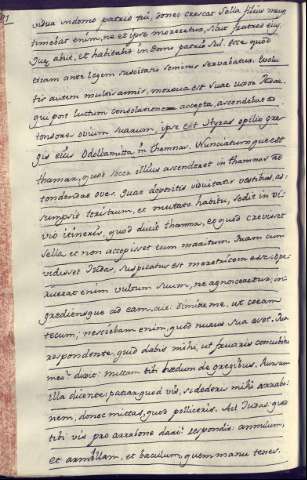 vidua in domo patris tui, donec crescat Sella filius meus
timebat enim, ne et ipse moreretur, sicut fratres ejus
Quae abiit, et habitabit in domo patris sui. Ore quod
etiam ante legem suscitatio seminis servabatur. Evolu
tis autem multis annis, mortua est Suae uxor Judae,
qui post luctum consolatione accepta, ascendebat ad
tonsores ovium suarum, ipse est Hyras opilio gre
gis ejus Odollamita in Thamnas. Nunciatumque est
Thamar, quod socer illius ascenderet in Thamnas ad
tondendas oves. Quae depositis viduitatis vestibus, as
sumpsit theristrum, et mutato habitu, sedit in bi
vio itineris, quod ducit Thamna, eo quod crevisset
Sella et non accepisset eum maritum. Quam cum
vidisset Judas, suspicatus est meretricem esse; ope
ruerat enim vultum suum, ne agnosceretur, in
grediensque ad eam, ait: dimitte me, ut coeam
tecum; nesciebam enim, quod nurus sua esset. Qua
respondente, quid dabis mihi, ut fruaris concubitu
meo? dixit: mittam tibi hoedum de gregibus. Rursum
illa dicente: patiar quod vis, si dederis mihi arrabo
nem, donec mittas, quod polliceris. Ait Judas quid
tibi vis pro arrabone dari? respondit: annulum,
et armillam, et baculum, quem manu tenes.